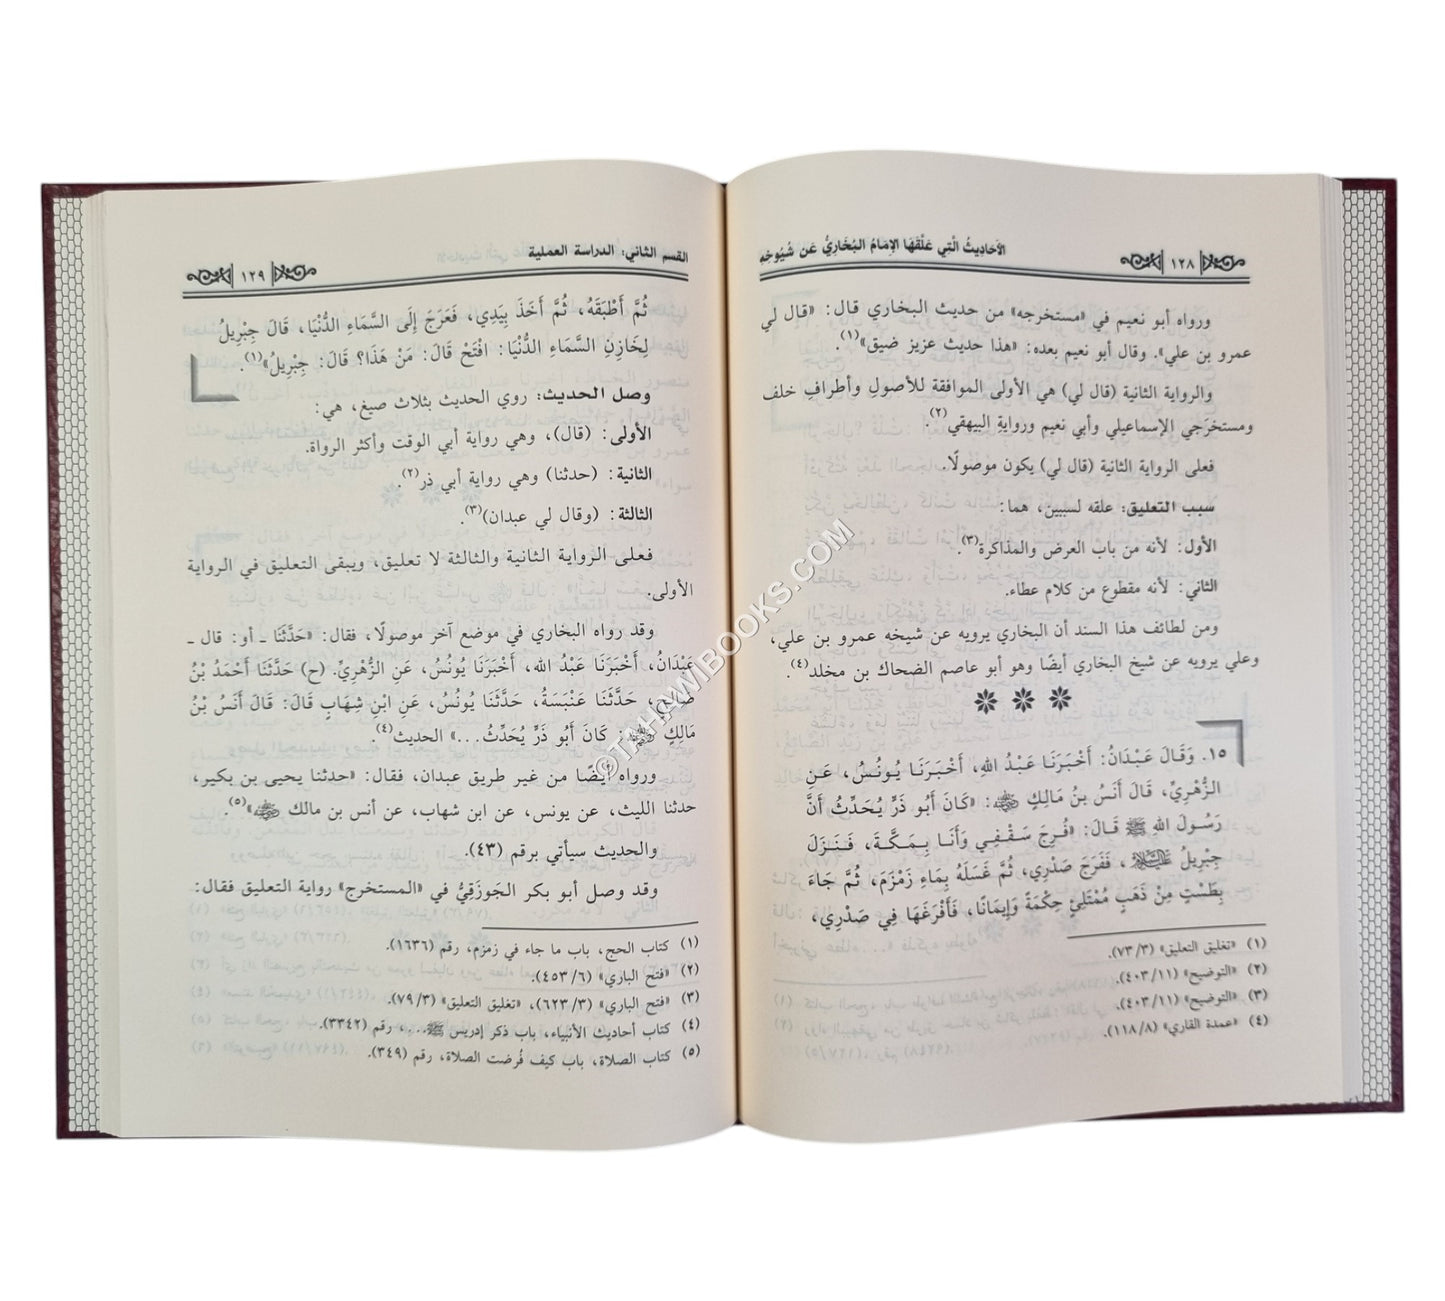 ١٢٨
الأَحَادِيثُ الَّتِي عَلَّقَهَا الإِمَامُ البُخَارِيُّ عَن شُيُوخِهِ
ورواه أبو نعيم في «مستخرجه» من حديث البخاري قال: «قال لي
عمرو بن علي». وقال أبو نعيم بعده: «هذا حديث عزيز ضيق»(١).
والرواية الثانية (قال لي) هي الأولى الموافقة للأصولِ وأطرافِ خلف
ومستخرَجي الإسماعيلي وأبي نعيم وروايةِ البيهقي(٢).
فعلى الرواية الثانية (قال لي) يكون موصولًا.
سبب التعليق: علقه لسببين، هما:
الأول: لأنه من باب العرض والمذاكرة(٣).
الثاني: لأنه مقطوع من كلام عطاء.
ومن لطائف هذا السند أن البخاري يرويه عن شيخه عمرو بن علي،
وعلي يرويه عن شيخ البخاري أيضًا وهو أبو عاصم الضحاك بن مخلد(٤).
١٥. وَقَالَ عَبْدَانُ: أَخْبَرَنَا عَبْدُ اللهِ، أَخْبَرَنَا يُونُسُ، عَنِ
الزُّهْرِيِّ، قَالَ أَنَسُ بنُ مَالِكٍ ﷺ: «كَانَ أَبُو ذَرٍّ يُحَدِّثُ أَنَّ
رَسُولَ اللهِ ﷺ قَالَ: «فُرِجَ سَقْفِي وَأَنَا بِمَكَّةَ، فَنَزَلَ
جِبْرِيلُ عليه السلام، فَفَرَجَ صَدْرِي، ثُمَّ غَسَلَهُ بِمَاءِ زَمْزَمَ، ثُمَّ جَاءَ
بِطَسْتٍ مِنْ ذَهَبٍ مُمْتَلِئٍ حِكْمَةً وَإِيمَانًا، فَأَفْرَغَهَا فِي صَدْرِي،
(١) «تغليق التعليق» (٣/ ٧٣).
(٢) «التوضيح» (١١/ ٤٠٣).
(٣) «التوضيح» (١١/ ٤٠٣).
(٤) «عمدة القاري» (٨/ ١١٨).
القسم الثاني: الدراسة العملية
١٢٩
ثُمَّ أَطْبَقَهُ، ثُمَّ أَخَذَ بِيَدِي، فَعَرَجَ إِلَى السَّمَاءِ الدُّنْيَا، قَالَ جِبْرِيلُ
لِخَازِنِ السَّمَاءِ الدُّنْيَا: افْتَحْ قَالَ: مَنْ هَذَا؟ قَالَ: جِبْرِيلُ»(١).
وصل الحديث: روي الحديث بثلاث صيغ، هي:
الأولى: (قال)، وهي رواية أبي الوقت وأكثر الرواة.
الثانية: (حدثنا) وهي رواية أبي ذر(٢).
الثالثة: (وقال لي عبدان)(٣).
فعلى الرواية الثانية والثالثة لا تعليق، ويبقى التعليق في الرواية
الأولى.
وقد رواه البخاري في موضع آخر موصولًا، فقال: «حَدَّثَنَا ـ أو: قال ـ
عَبْدَانُ، أَخْبَرَنَا عَبْدُ الله، أَخْبَرَنَا يُونُسُ، عَنِ الزُّهْرِيِّ. (ح) حَدَّثَنَا أَحْمَدُ بْنُ
صَالِحٍ، حَدَّثَنَا عَنْبَسَةُ، حَدَّثَنَا يُونُسُ، عَنِ ابْنِ شِهَابٍ قَالَ: قَالَ أَنَسُ بْنُ
مَالِكٍ: كَانَ أَبُو ذَرٍّ يُحَدِّثُ...» الحديث(٤).
ورواه أيضًا من غير طريق عبدان، فقال: «حدثنا يحيى بن بكير،
حدثنا الليث، عن يونس، عن ابن شهاب، عن أنس بن مالك»(٥).
والحديث سيأتي برقم (٤٣).
وقد وصل أبو بكر الجَوزَقِيُّ في «المستخرج» رواية التعليق فقال:
(١) كتاب الحج، باب ما جاء في زمزم، رقم (١٦٣٦).
(٢) «فتح الباري» (٦/ ٤٥٣).
(٣) «فتح الباري» (٣/ ٦٢٣)، «تغليق التعليق» (٣/ ٧٩).
(٤) كتاب أحاديث الأنبياء، باب ذكر إدريس ﷺ...، رقم (٣٣٤٢).
(٥) كتاب الصلاة، باب كيف فُرضت الصلاة، رقم (٣٤٩).
©TAHAWIBOOKS.COM